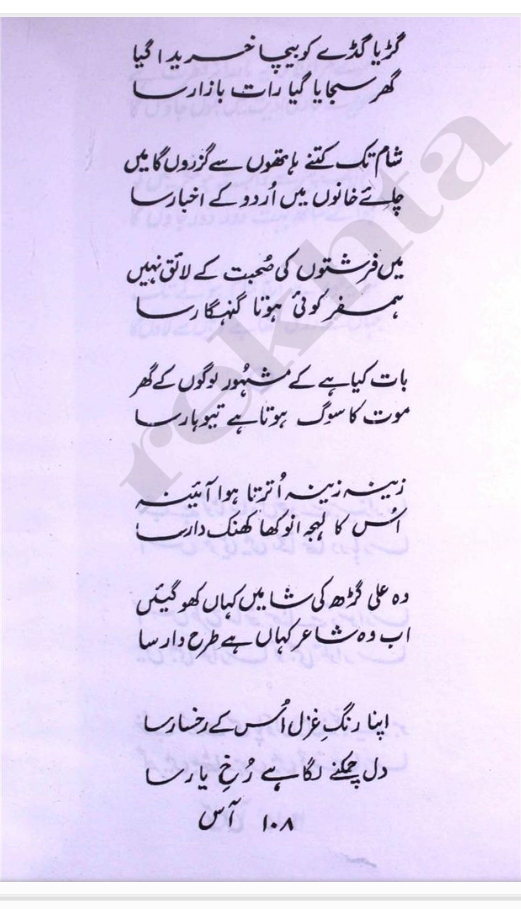 گڑیا گڈے کو بیچا خریدا گیا
گھر سجایا گیا رات بازار سا
شام تک کتنے ہاتھوں سے گزروں گا میں
چائے خانوں میں اُردو کے اخبار سا
میں فرشتوں کی صُحبت کے لائق نہیں
ہمسفر کوئی ہوتا گنہگار سا
بات کیا ہے کے مشہُور لوگوں کے گھر
موت کا سوگ ہوتا ہے تیوہار سا
زینہ زینہ اُترتا ہوا آئینہ
اُس کا لہجہ انوکھا کھنک دار سا
وہ علی گڑھ کی شامیں کہاں کھو گیئں
اب وہ شاعر کہاں ہے طرح دار سا
اپنا رنگِ غزل اُس کے رخسار سا
دل چمکنے لگا ہے رُخِ یار سا
۱۰۸ آس
rekhta